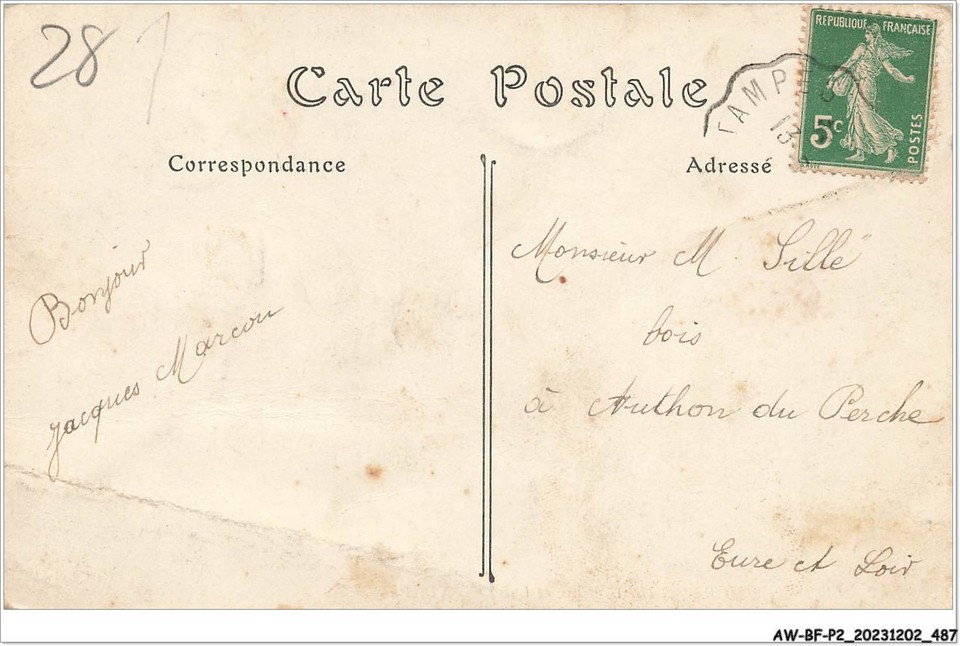 28
Carte Postale
RÉPUBLIQUE FRANÇAISE
5c
POSTES
TAMPES
13
Correspondance
Adressé
Bonjour
Jacques Marcou
Monsieur M. Sillé
bois
à Authon du Perche
Eure et Loir
AW-BF-P2_20231202_487